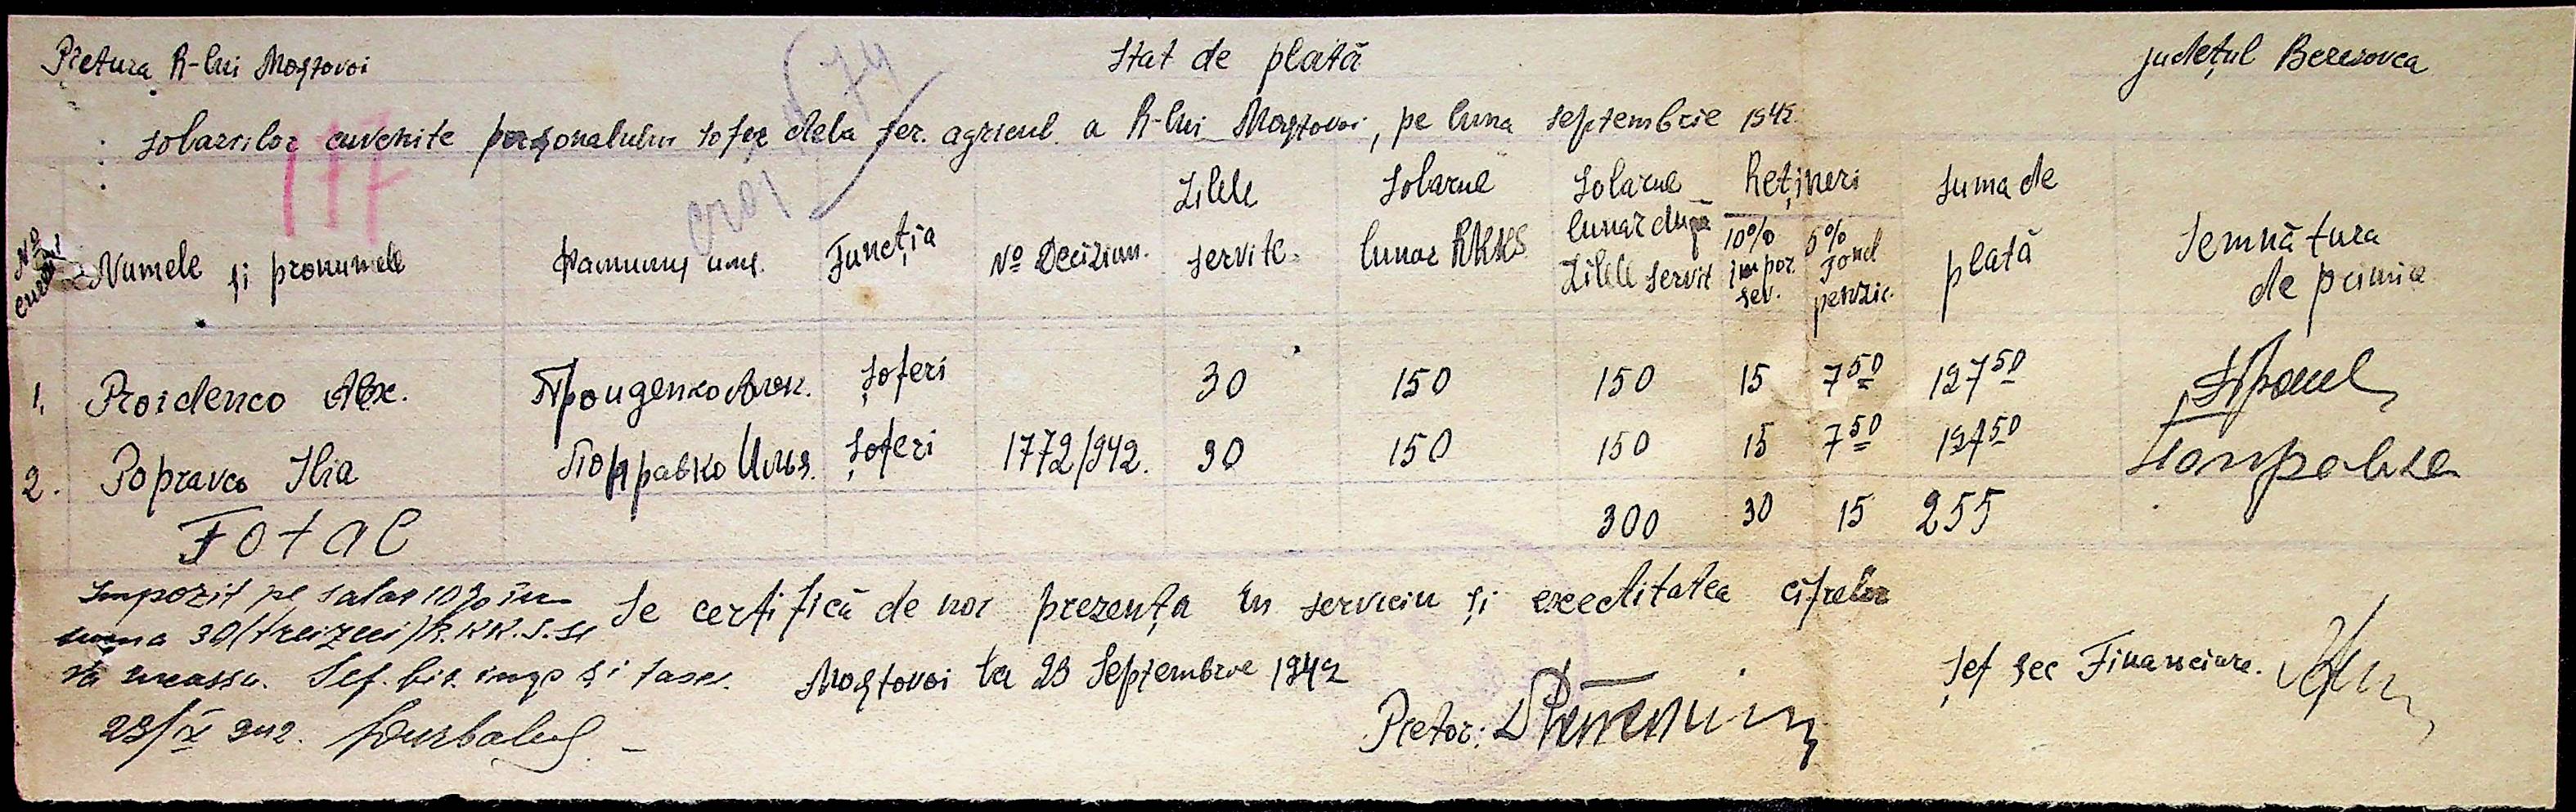 Pretura R-lui Mostovoi
Stat de plată
județul Beresovca
solariilor cuvenite personalului sofer dela fer. agricul. a R-lui Mostovoi, pe luna septembrie 1942
74
117
No curent
Numele și pronumele
Фамилия имя.
Funcția
No Deciziun.
Zilele servite.
Solarul lunar RKKS
Solarul lunar după Zilele servit
Rețineri
10% impoz. sev.
5% Fond penzie.
suma de plată
Semnătura de primire
1. Proidenco Alex. Проиденко Алек. șoferi 30 150 150 15 7 50 127 50
2. Popravco Ilia Поправко Илья. șoferi 1772/942. 30 150 150 15 7 50 127 50 Поправко
Total 300 30 15 255
Impozit pe salar 10% în
suma 30 (treizeci) R.KK.S. se
va incassa. Șef. bir. imp și taxe.
23/IX 942.
Se certifică de noi prezența în serviciu și exectitatea cifrelor
Mostovoi la 23 Septembrie 1942
Pretor:
Șef sec Financiare.